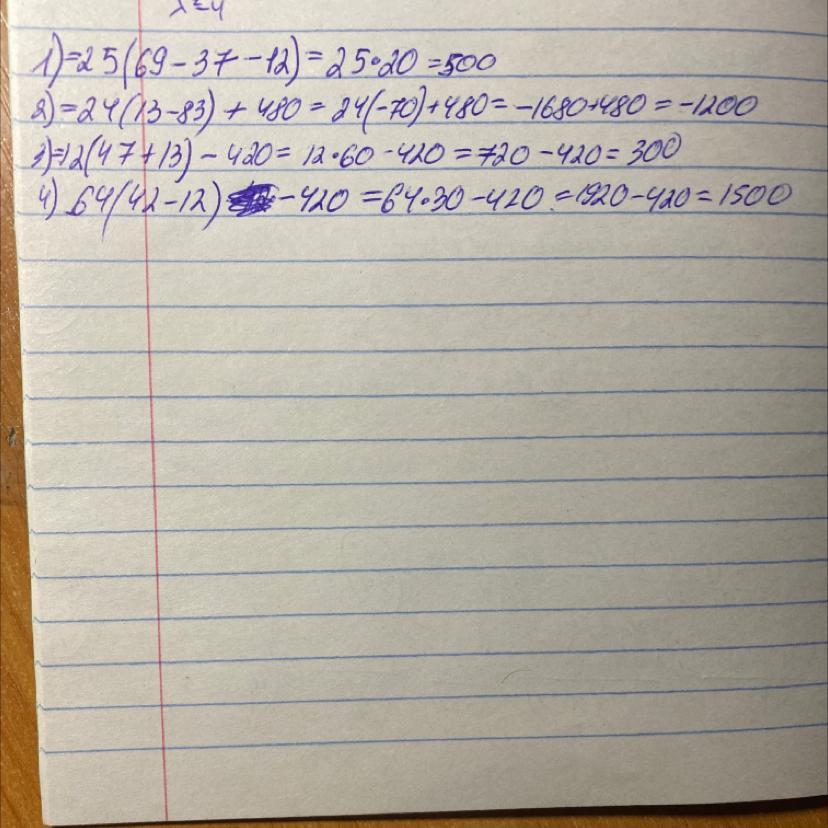 1)=25(69-37-12)=25•20=500
2)=24(13-83)+480=24(-70)+480=-1680+480=-1200
3)=12(47+13)-420=12•60-420=720-420=300
4) 64(42-12) -420=64•30-420=1920-420=1500